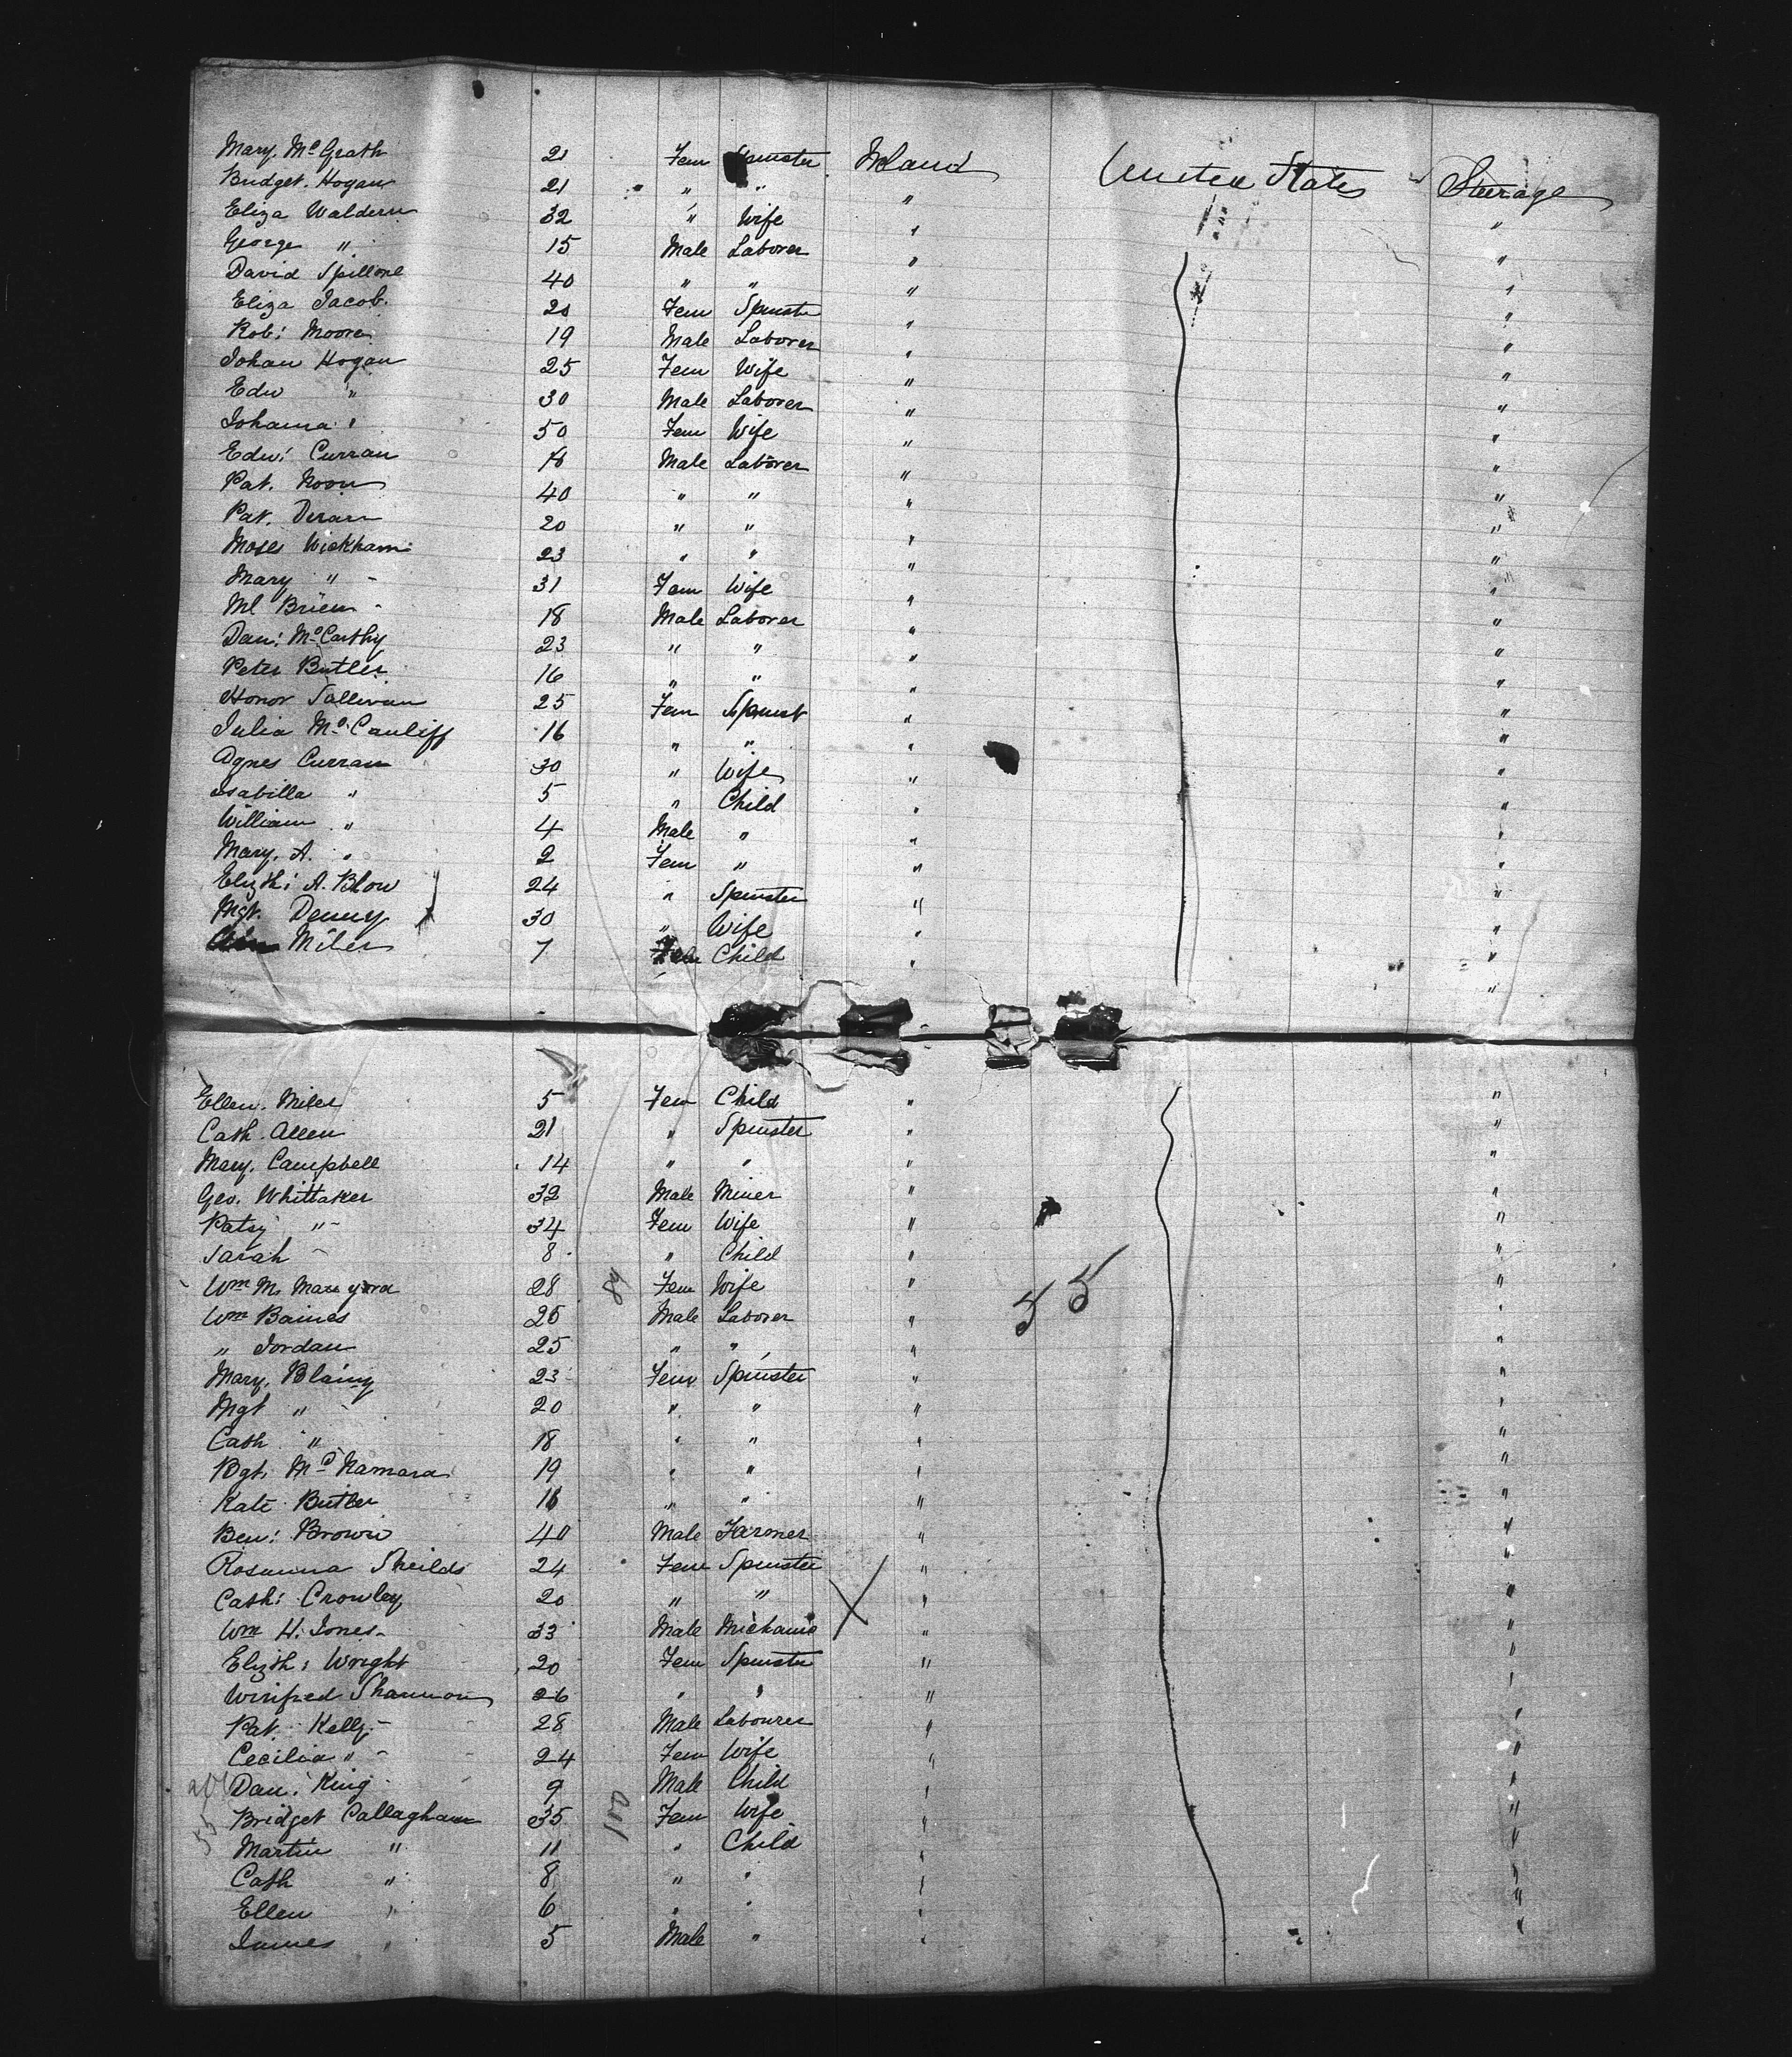 Mary. Mc Grath 21 Fem Spinster Ireland United States Steerage
Bridget. Hogan 21 " " " "
Eliza Waldern 32 " Wife " "
George " 15 Male Laborer " "
David Spillane 40 " " " "
Eliza Jacob. 20 Fem Spinste " "
Rob: Moore 19 Male Laborer " "
Johan Hogan 25 Fem Wife " "
Edw " 30 Male Laborer " "
Johanna " 50 Fem Wife " "
Edw: Curran Male Laborer " "
Pat. Noon 40 " " " "
Pat. 20 " " " "
Moses Wickham 23 " " " "
Mary " 31 Fem Wife " "
Ml Brien 18 Male Laborer " "
Dan: Mc Carthy 23 " " " "
Peter Butler 16 " " " "
Honor Sullivan 25 Fem Spinst " "
Julia Mc Cauliff 16 " " " "
Agnes Curran 30 " Wife " "
Isabilla " 5 " Child " "
William " 4 Male " " "
Mary. A. " 2 Fem " " "
Elizth: A. Blow 24 " Spinster " "
Mgt. Denny 30 " Wife " "
Miles 7 Fem Child " "
Ellen. Miles 5 Fem Child " "
Cath. Allen 21 " Spinster " "
Mary. Campbell 14 " " " "
Geo. Whittaker 32 Male Miner " "
Patsy " 34 Fem Wife " "
Sarah 8 " Child " "
Wm M. 28 84 Fem Wife " "
Wm Baines 25 Male Laborer " 55 "
" Jordan 25 " " " "
Mary. Blainy 23 Fem Spinster " "
Mgt " 20 " " " "
Cath " 18 " " " "
Bgt. Mc Namara 19 " " " "
Kate Butler 18 " " " "
Ben: Brown 40 Male Farmer " "
Rosanna Sheilds 24 Fem Spinster " "
Cath: Crowley 20 " " X " "
Wm H. Jones 33 Male Michanic " "
Elizth: Wright 20 Fem Spinster " "
Winifred Shannon 26 " " " "
Pat. Kelly 28 Male Labourer " "
Cecilia " 24 Fem Wife " "
Dan: King 9 Male Child " "
55 Bridget Callaghan 35 100 Fem Wife " "
Martin " 11 " Child " "
Cath " 8 " " " "
Ellen " 6 " " " "
James " 5 Male " " "